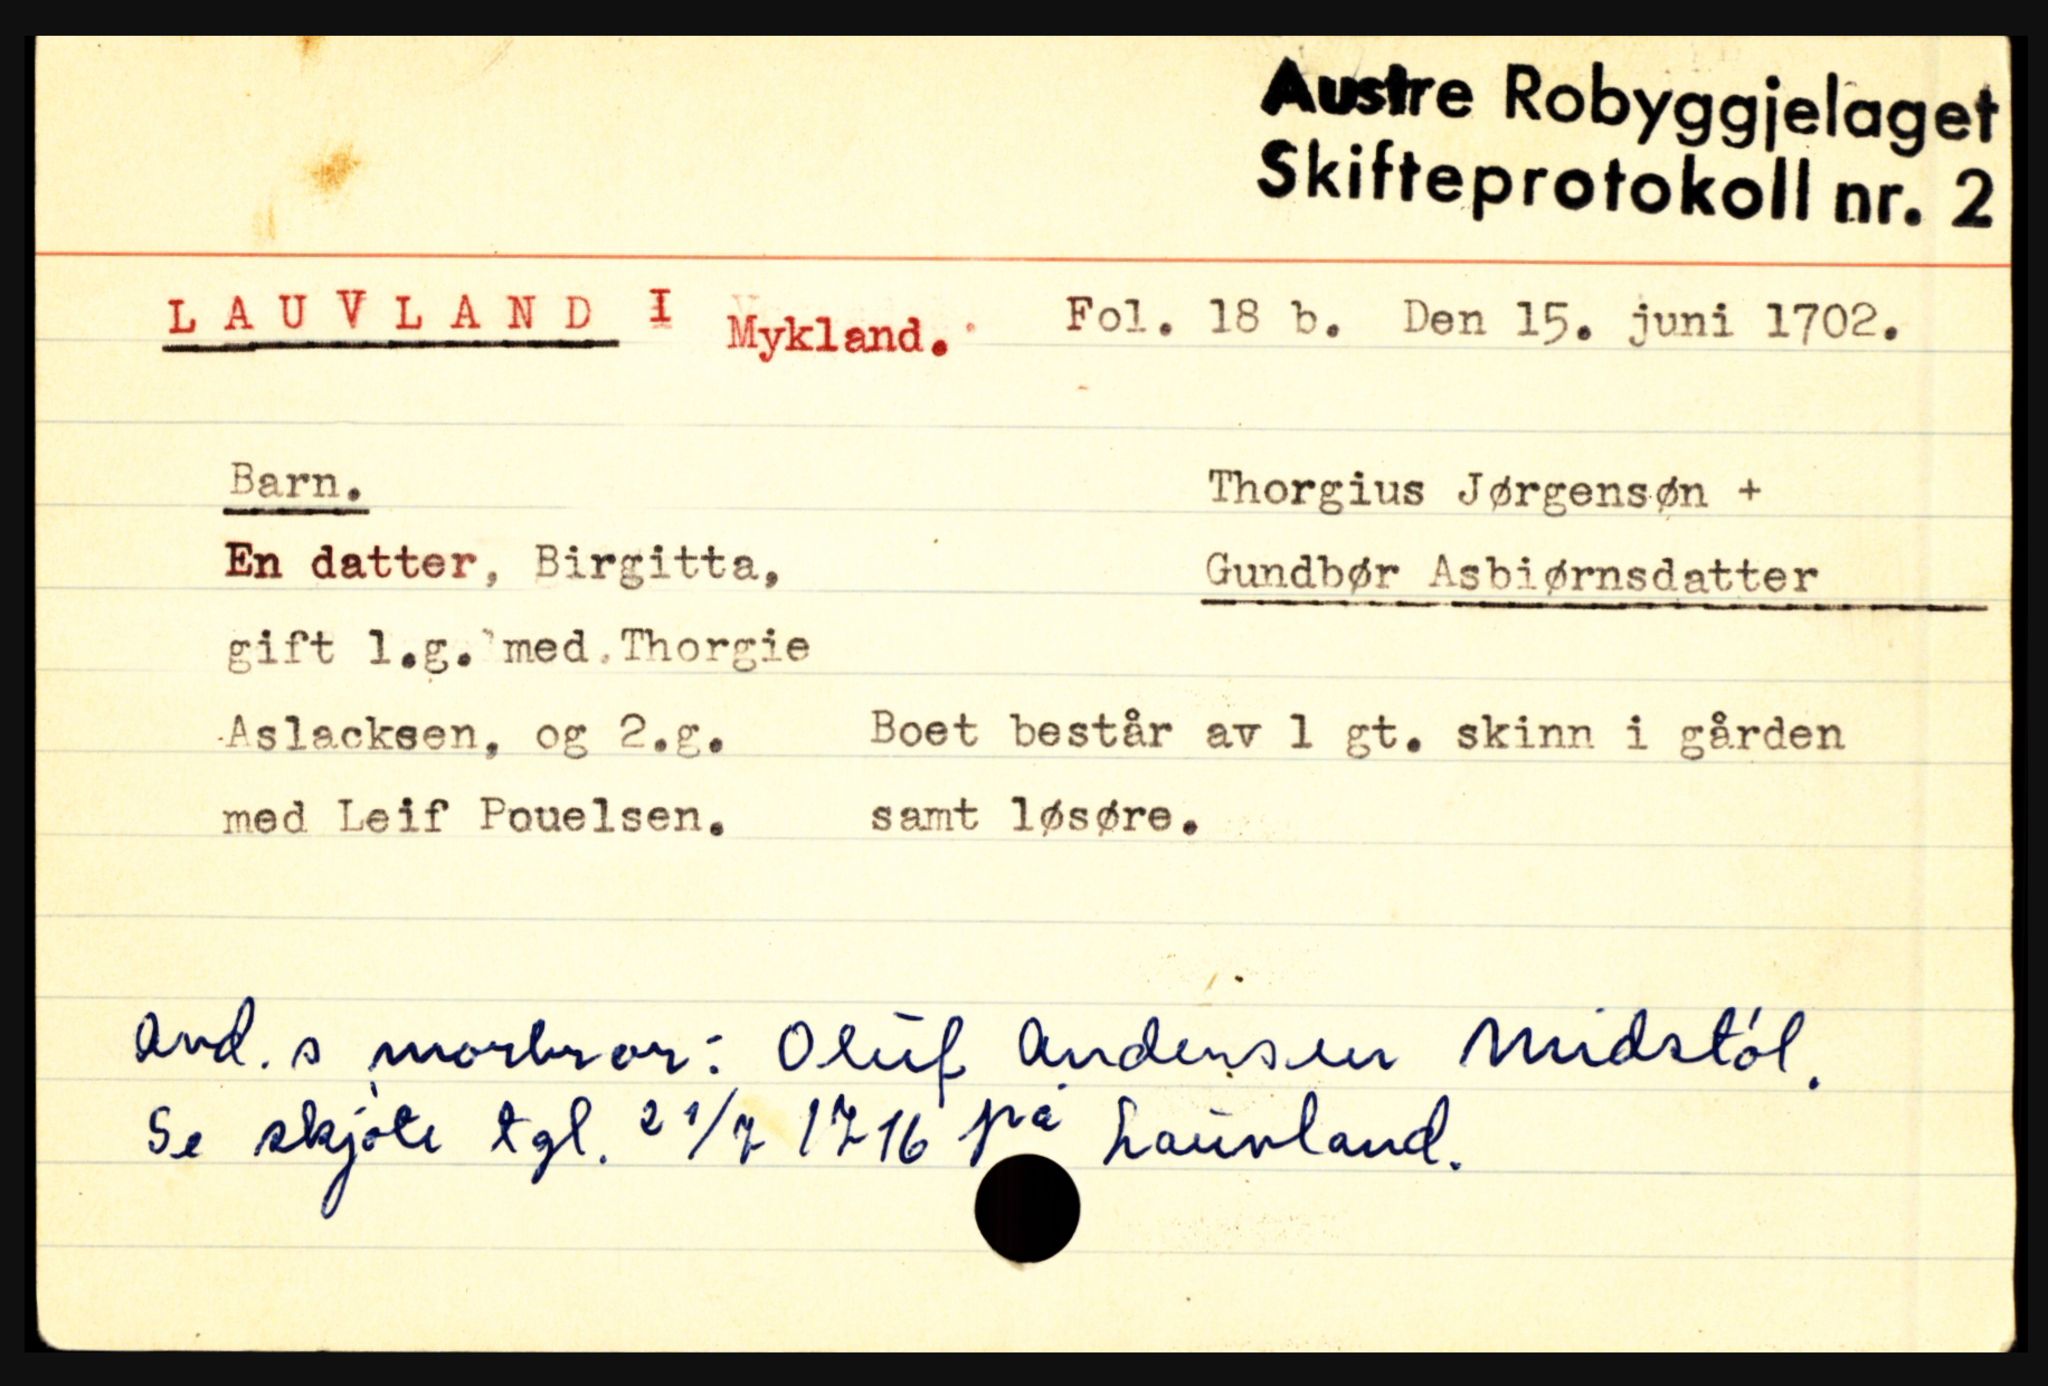 Austre Robyggjelaget
Skifteprotokoll nr. 2
LAUVLAND I Mykland. Fol. 18 b. Den 15. juni 1702.
Barn.
Thorgius Jørgensøn +
En datter, Birgitta,
Gundbør Asbiørnsdatter
gift 1.g. med Thorgie
Aslacksen, og 2.g.
med Leif Pouelsen.
Boet består av 1 gt. skinn i gården
samt løsøre.
Avd. s morbror: Oluf Andersen Midstøl.
Se skjøte tgl. 21/7 1716 på Lauvland.